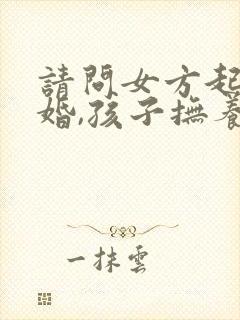 請問女方起
婚,孩子撫養
一抹雲